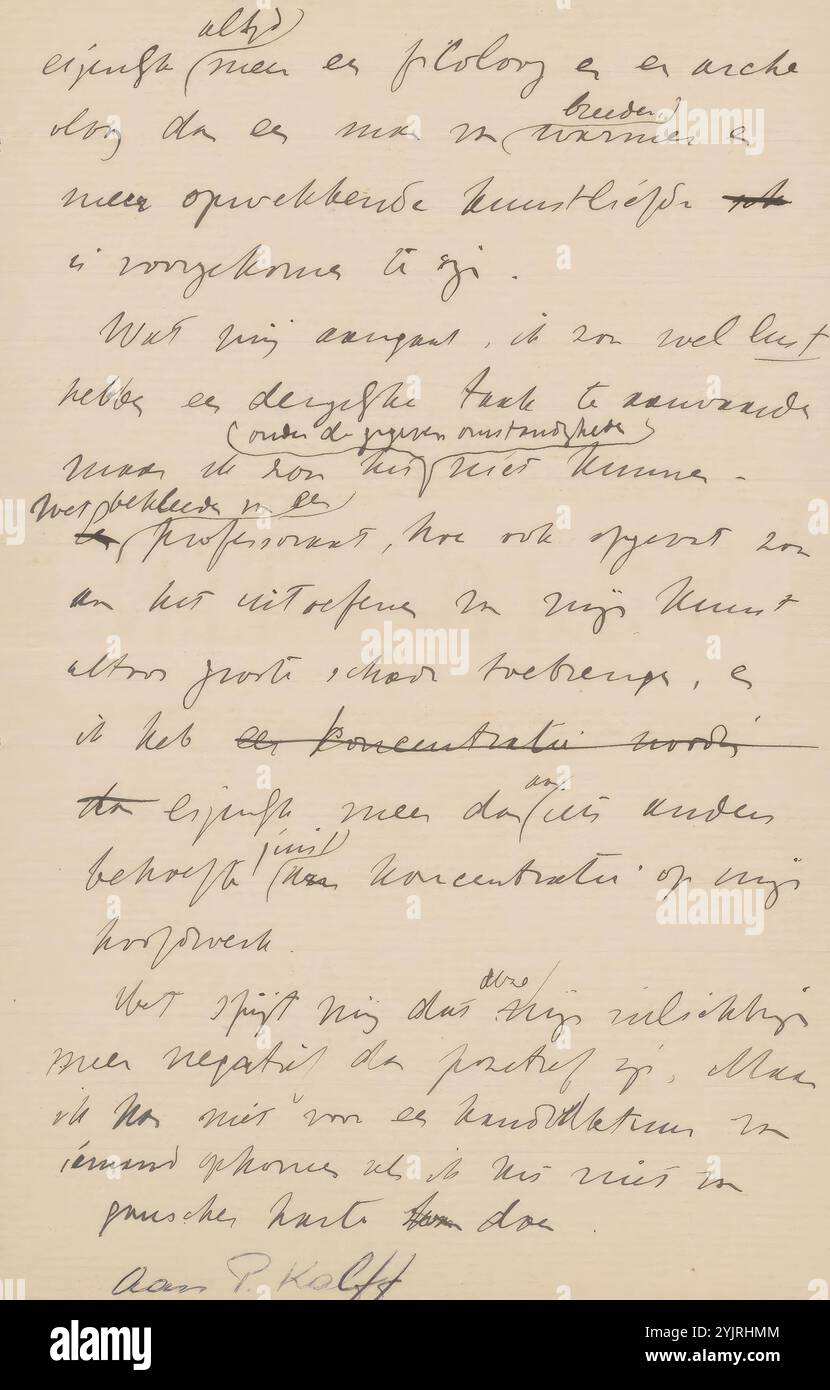 altijd
eigenlijk meer een filoloog en een arche
oloog dan een man van warmer en
breeder
meer opwekkende kunstliefde
is voorgekomen te zijn.
Wat mij aangaat, ik zou wel lust
hebben een dergelijke taak te aanvaarden
(onder de gegeven omstandigheden)
maar ik zou het niet kunnen.
Het bekleeden van een
professoraat, hoe ook opgevat zou
aan het uitoefenen van mijn kunst
altoos groote schade toebrengen, en
ik heb een koncentratie noodig
dan eigenlijk meer dan aan iets anders
juist
behoefte aan koncentratie op mijn
hoofdwerk.
Het spijt mij dat deze mijn inlichtingen
meer negatief dan positief zijn. Maar
ik kan niet voor een kandidatuur van
iemand opkomen als ik het niet van
ganscher harte doe.
aan P. Kalff
alamy
Image ID: 2YJRHMM
www.alamy.com